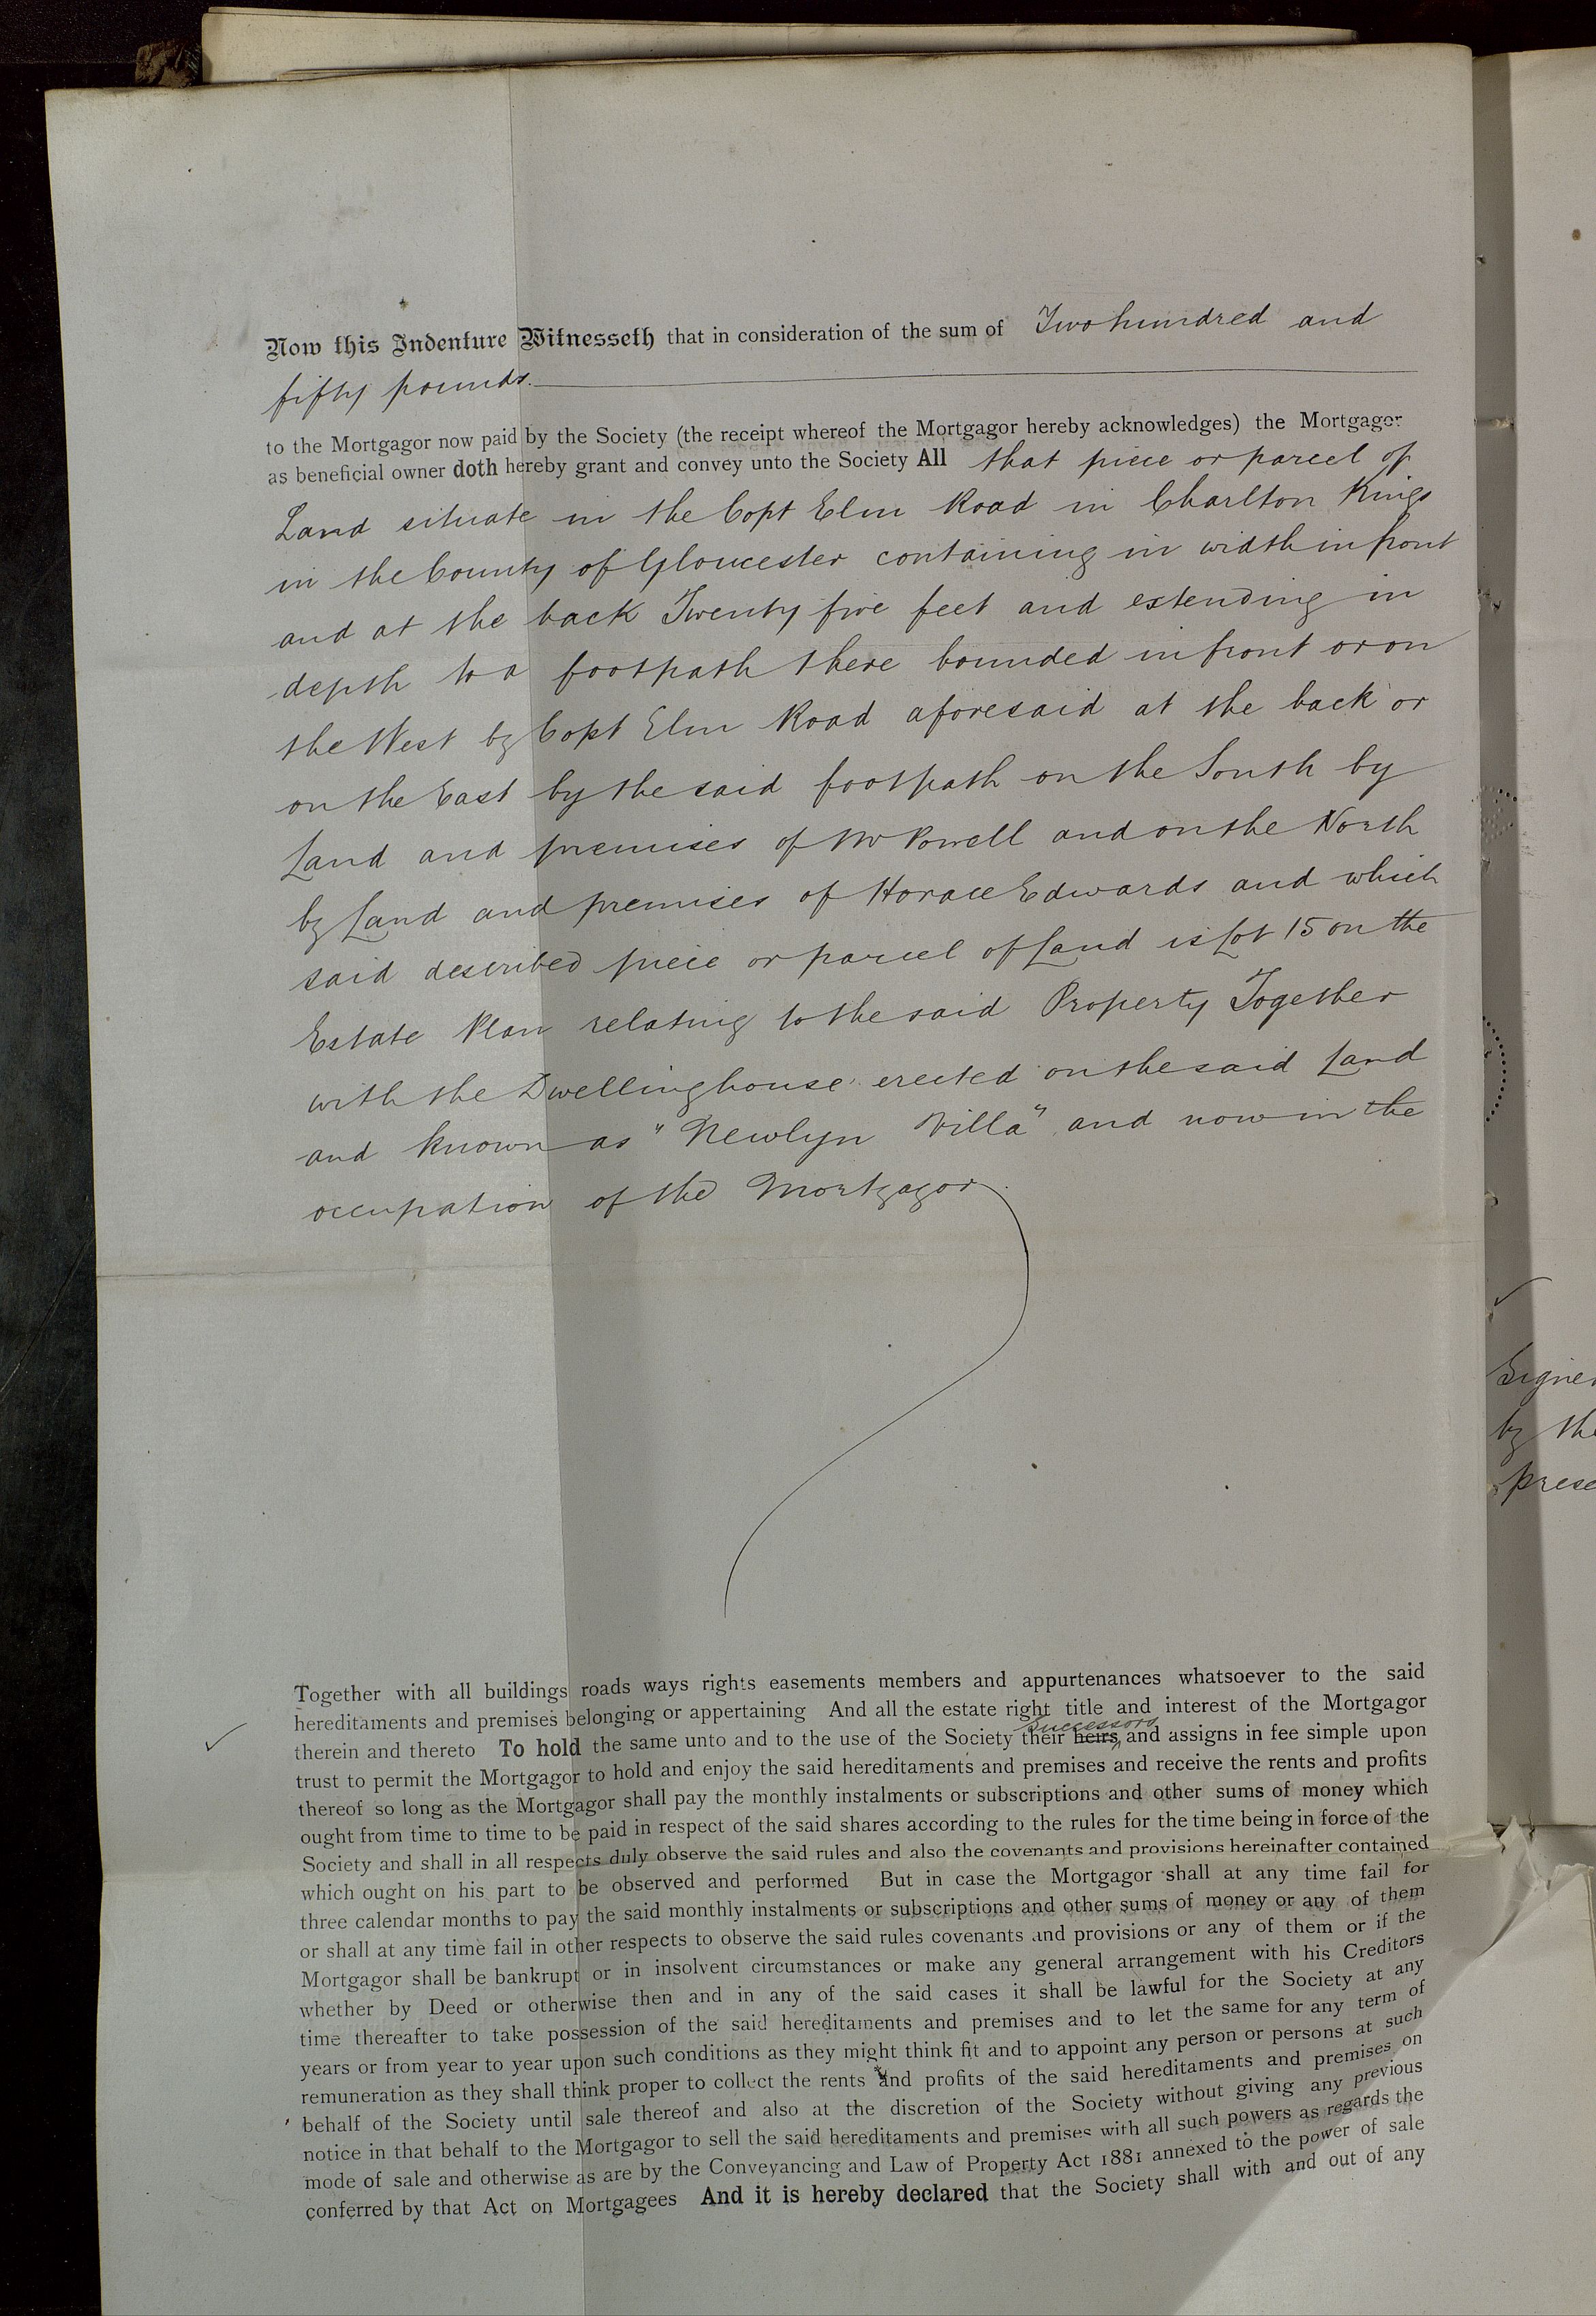 Now this Indenture Witnesseth that in consideration of the sum of Two hundred and
fifty pounds.
to the Mortgagor now paid by the Society (the receipt whereof the Mortgagor hereby acknowledges) the Mortgagor
as beneficial owner doth hereby grant and convey unto the Society All that piece or parcel of
Land situate in the Copt Elm Road in Charlton Kings
in the County of Gloucester containing in width in front
and at the back Twenty five feet and extending in
depth to a footpath there bounded in front or on
the West by Copt Elm Road aforesaid at the back or
on the East by the said footpath on the South by
Land and premises of Mr Powell and on the North
by Land and premises of Horace Edwards and which
said described piece or parcel of Land is Lot 15 on the
Estate Plan relating to the said Property Together
with the Dwellinghouse erected on the said Land
and known as "Newlyn Villa" and now in the
occupation of the Mortgagor
Signe
by the
prese
Together with all buildings roads ways rights easements members and appurtenances whatsoever to the said
hereditaments and premises belonging or appertaining And all the estate right title and interest of the Mortgagor
successors
therein and thereto To hold the same unto and to the use of the Society their heirs and assigns in fee simple upon
trust to permit the Mortgagor to hold and enjoy the said hereditaments and premises and receive the rents and profits
thereof so long as the Mortgagor shall pay the monthly instalments or subscriptions and other sums of money which
ought from time to time to be paid in respect of the said shares according to the rules for the time being in force of the
Society and shall in all respects duly observe the said rules and also the covenants and provisions hereinafter contained
which ought on his part to be observed and performed But in case the Mortgagor shall at any time fail for
three calendar months to pay the said monthly instalments or subscriptions and other sums of money or any of them
or shall at any time fail in other respects to observe the said rules covenants and provisions or any of them or if the
Mortgagor shall be bankrupt or in insolvent circumstances or make any general arrangement with his Creditors
whether by Deed or otherwise then and in any of the said cases it shall be lawful for the Society at any
time thereafter to take possession of the said hereditaments and premises and to let the same for any term of
years or from year to year upon such conditions as they might think fit and to appoint any person or persons at such
remuneration as they shall think proper to collect the rents and profits of the said hereditaments and premises on
behalf of the Society until sale thereof and also at the discretion of the Society without giving any previous
notice in that behalf to the Mortgagor to sell the said hereditaments and premises with all such powers as regards the
mode of sale and otherwise as are by the Conveyancing and Law of Property Act 1881 annexed to the power of sale
conferred by that Act on Mortgagees And it is hereby declared that the Society shall with and out of any